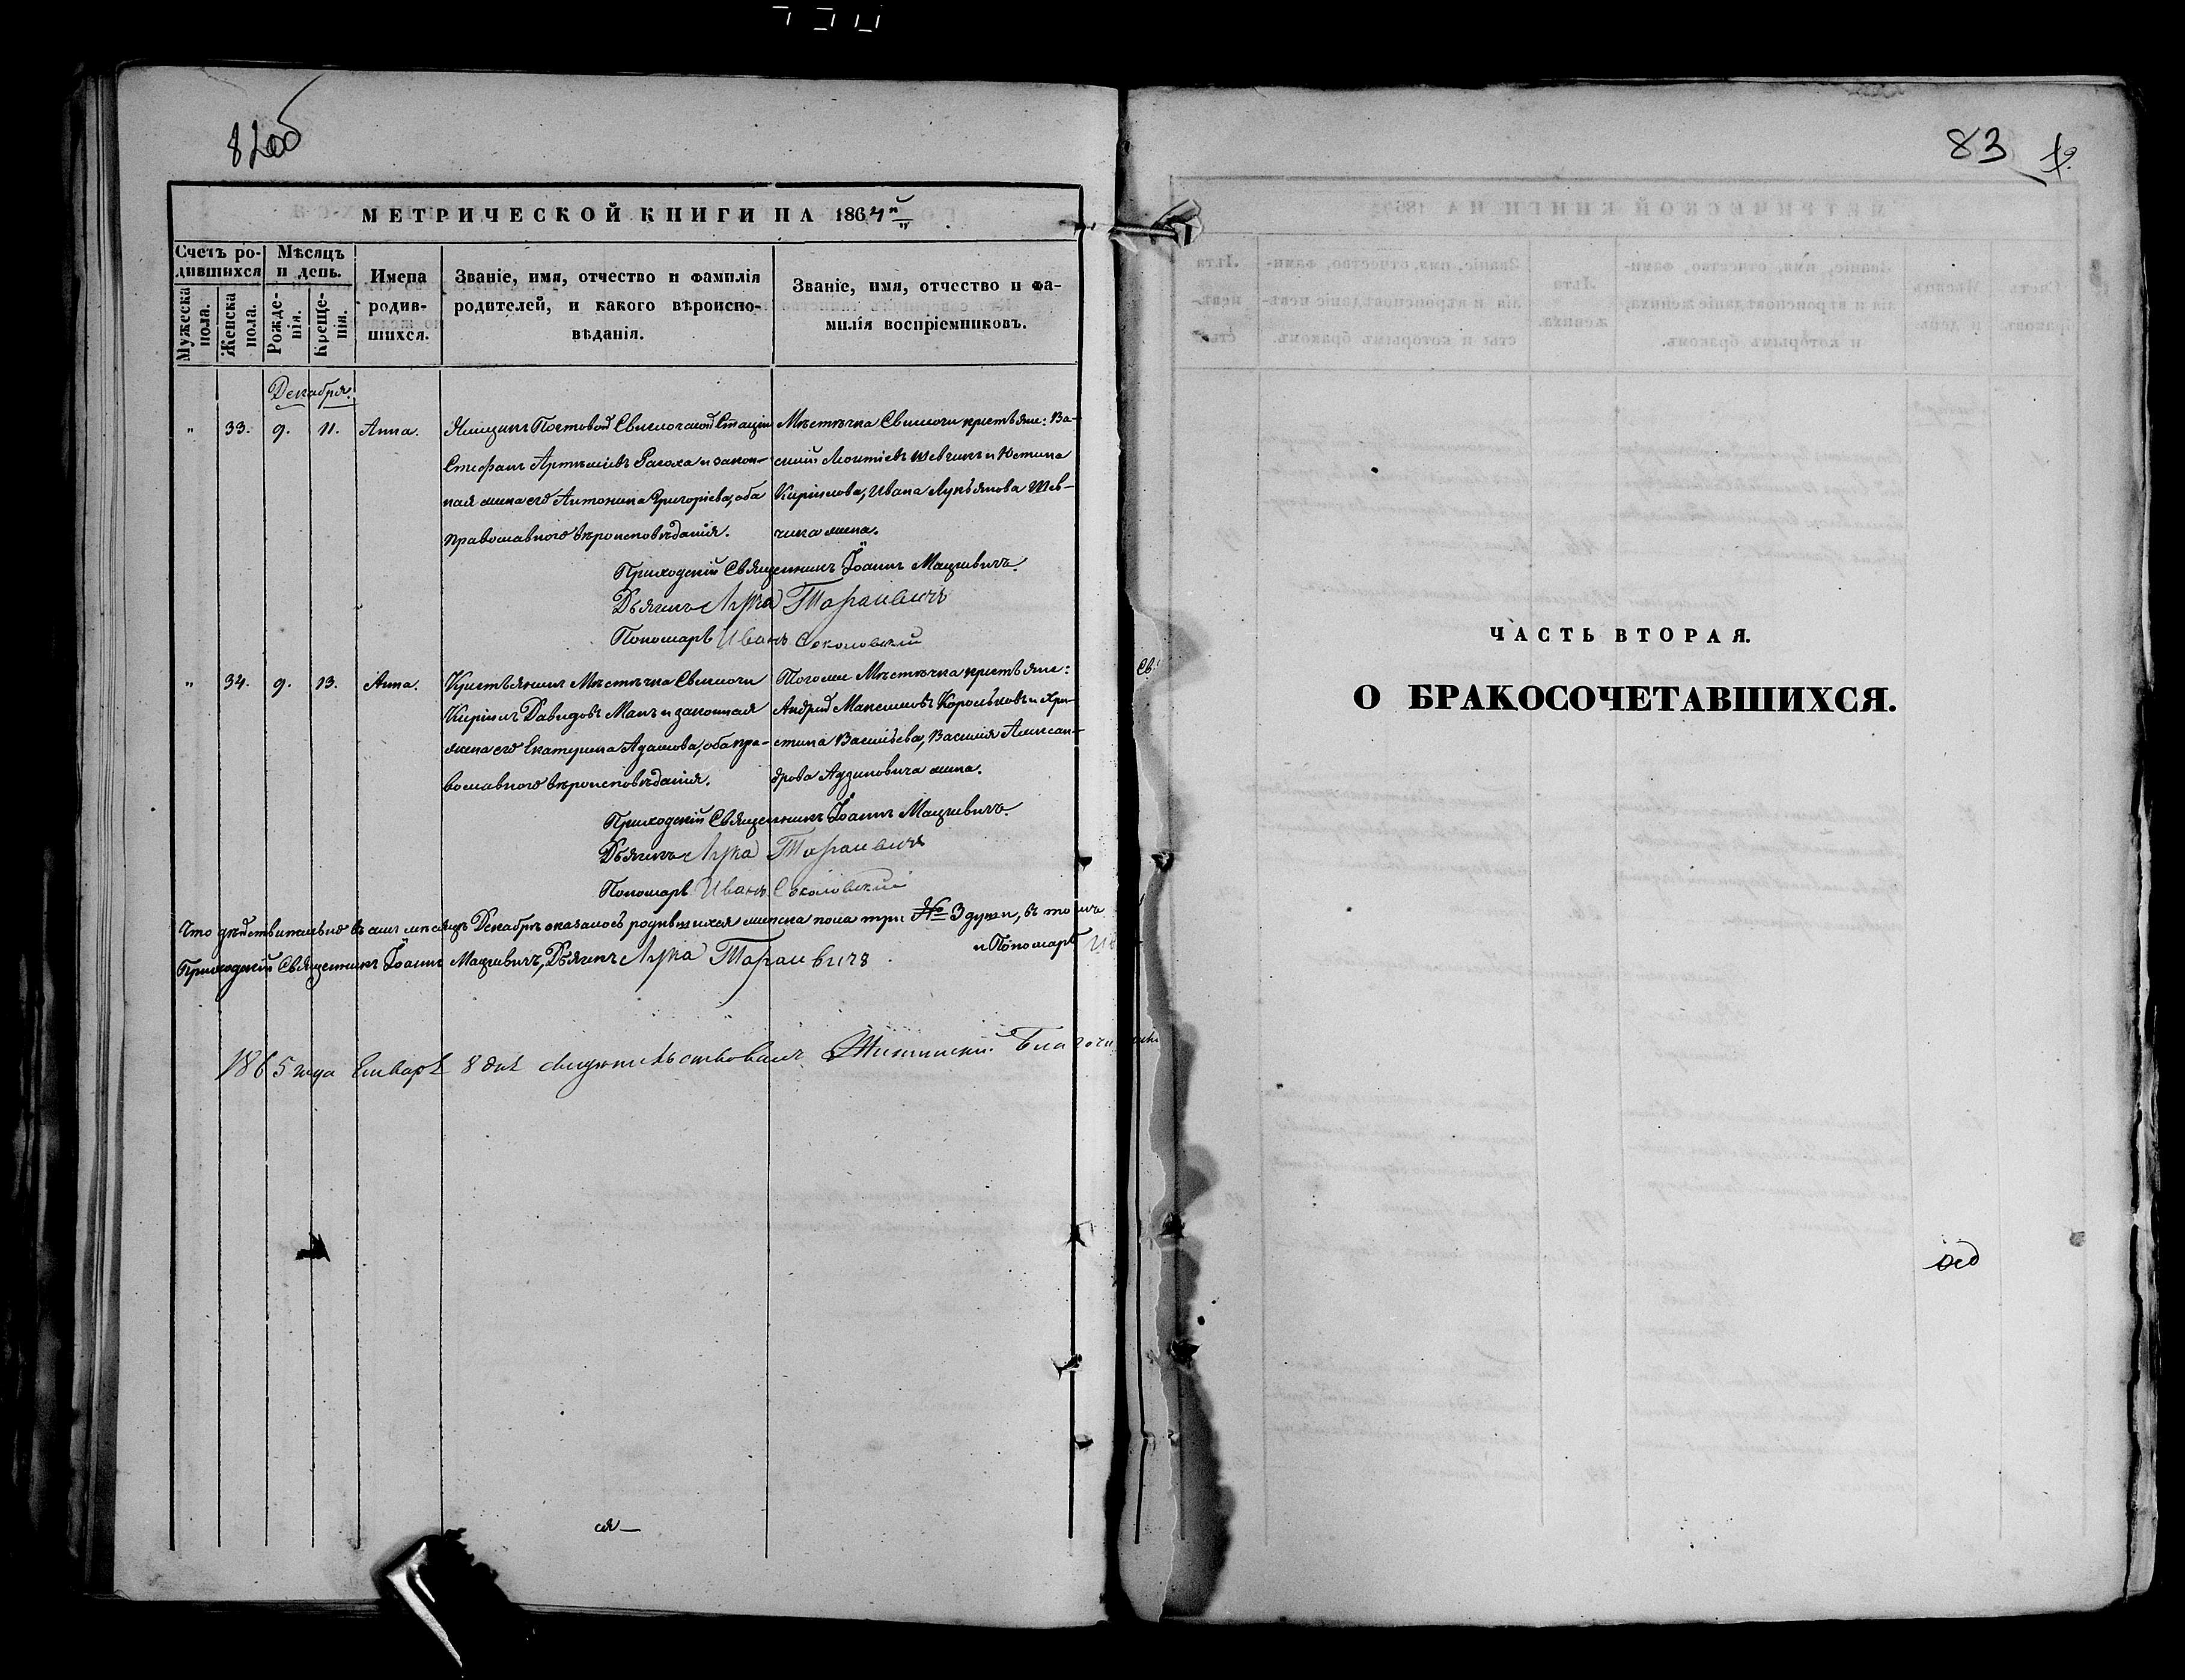 82об
МЕТРИЧЕСКОЙ КНИГИ НА 1864й
Счетъ ро-
дившихся
Мѣсяцъ
и день.
Мужеска
пола.
Женска
пола.
Рожде-
нія.
Креще-
нія.
Имена
родив-
шихся.
Званіе, имя, отчество и фамилія
родителей, и какого вѣроиспо-
вѣданія.
Званіе, имя, отчество и фа-
милія воспріемниковъ.
Декабря.
" 33. 9. 11. Анна.
Ямщикъ Почтовой Свислочской Стаціи
Стефанъ Артеміевъ Рагоха и закон-
ная жена его Антонина Григоріева, оба
православного вѣроисповѣданія.
Мѣстечка Свислочи крестьяне: Ва-
силій Леонтіевъ Шевчикъ и Юстина
Кирилова, Ивана Лукьянова Шев-
чика жена.
Приходскій Священникъ Іоаннъ Мацкевичъ.
Дьячекъ Лука Тараневичъ
Пономарь Иванъ Соколовскій
" 34. 9. 13. Анна.
Крестьянинъ Мѣстечка Свислочи
Кирилъ Давидовъ Манъ и законная
жена его Екатерина Адамова, оба пра-
вославного вѣроисповѣданія.
Тогоже Мѣстечка крестьяне:
Андрей Максимовъ Корольковъ и Хри-
стина Васильева, Василія Алексан-
дрова Адзиновича жена.
Приходскій Священникъ Іоаннъ Мацкевичъ.
Дьячекъ Лука Тараневичъ
Пономарь Иванъ Соколовскій
Что дѣйствительно въ семъ мѣсяцѣ Декабрѣ оказалось родившихся женска пола три № 3 души, въ томъ
Приходскій Священникъ Іоаннъ Мацкевичъ, Дьячекъ Лука Тараневичъ и Пономарь
1865 года Генваря 8 дня свидѣтельствовалъ
ся
83
ЧАСТЬ ВТОРАЯ.
О БРАКОСОЧЕТАВШИХСЯ.